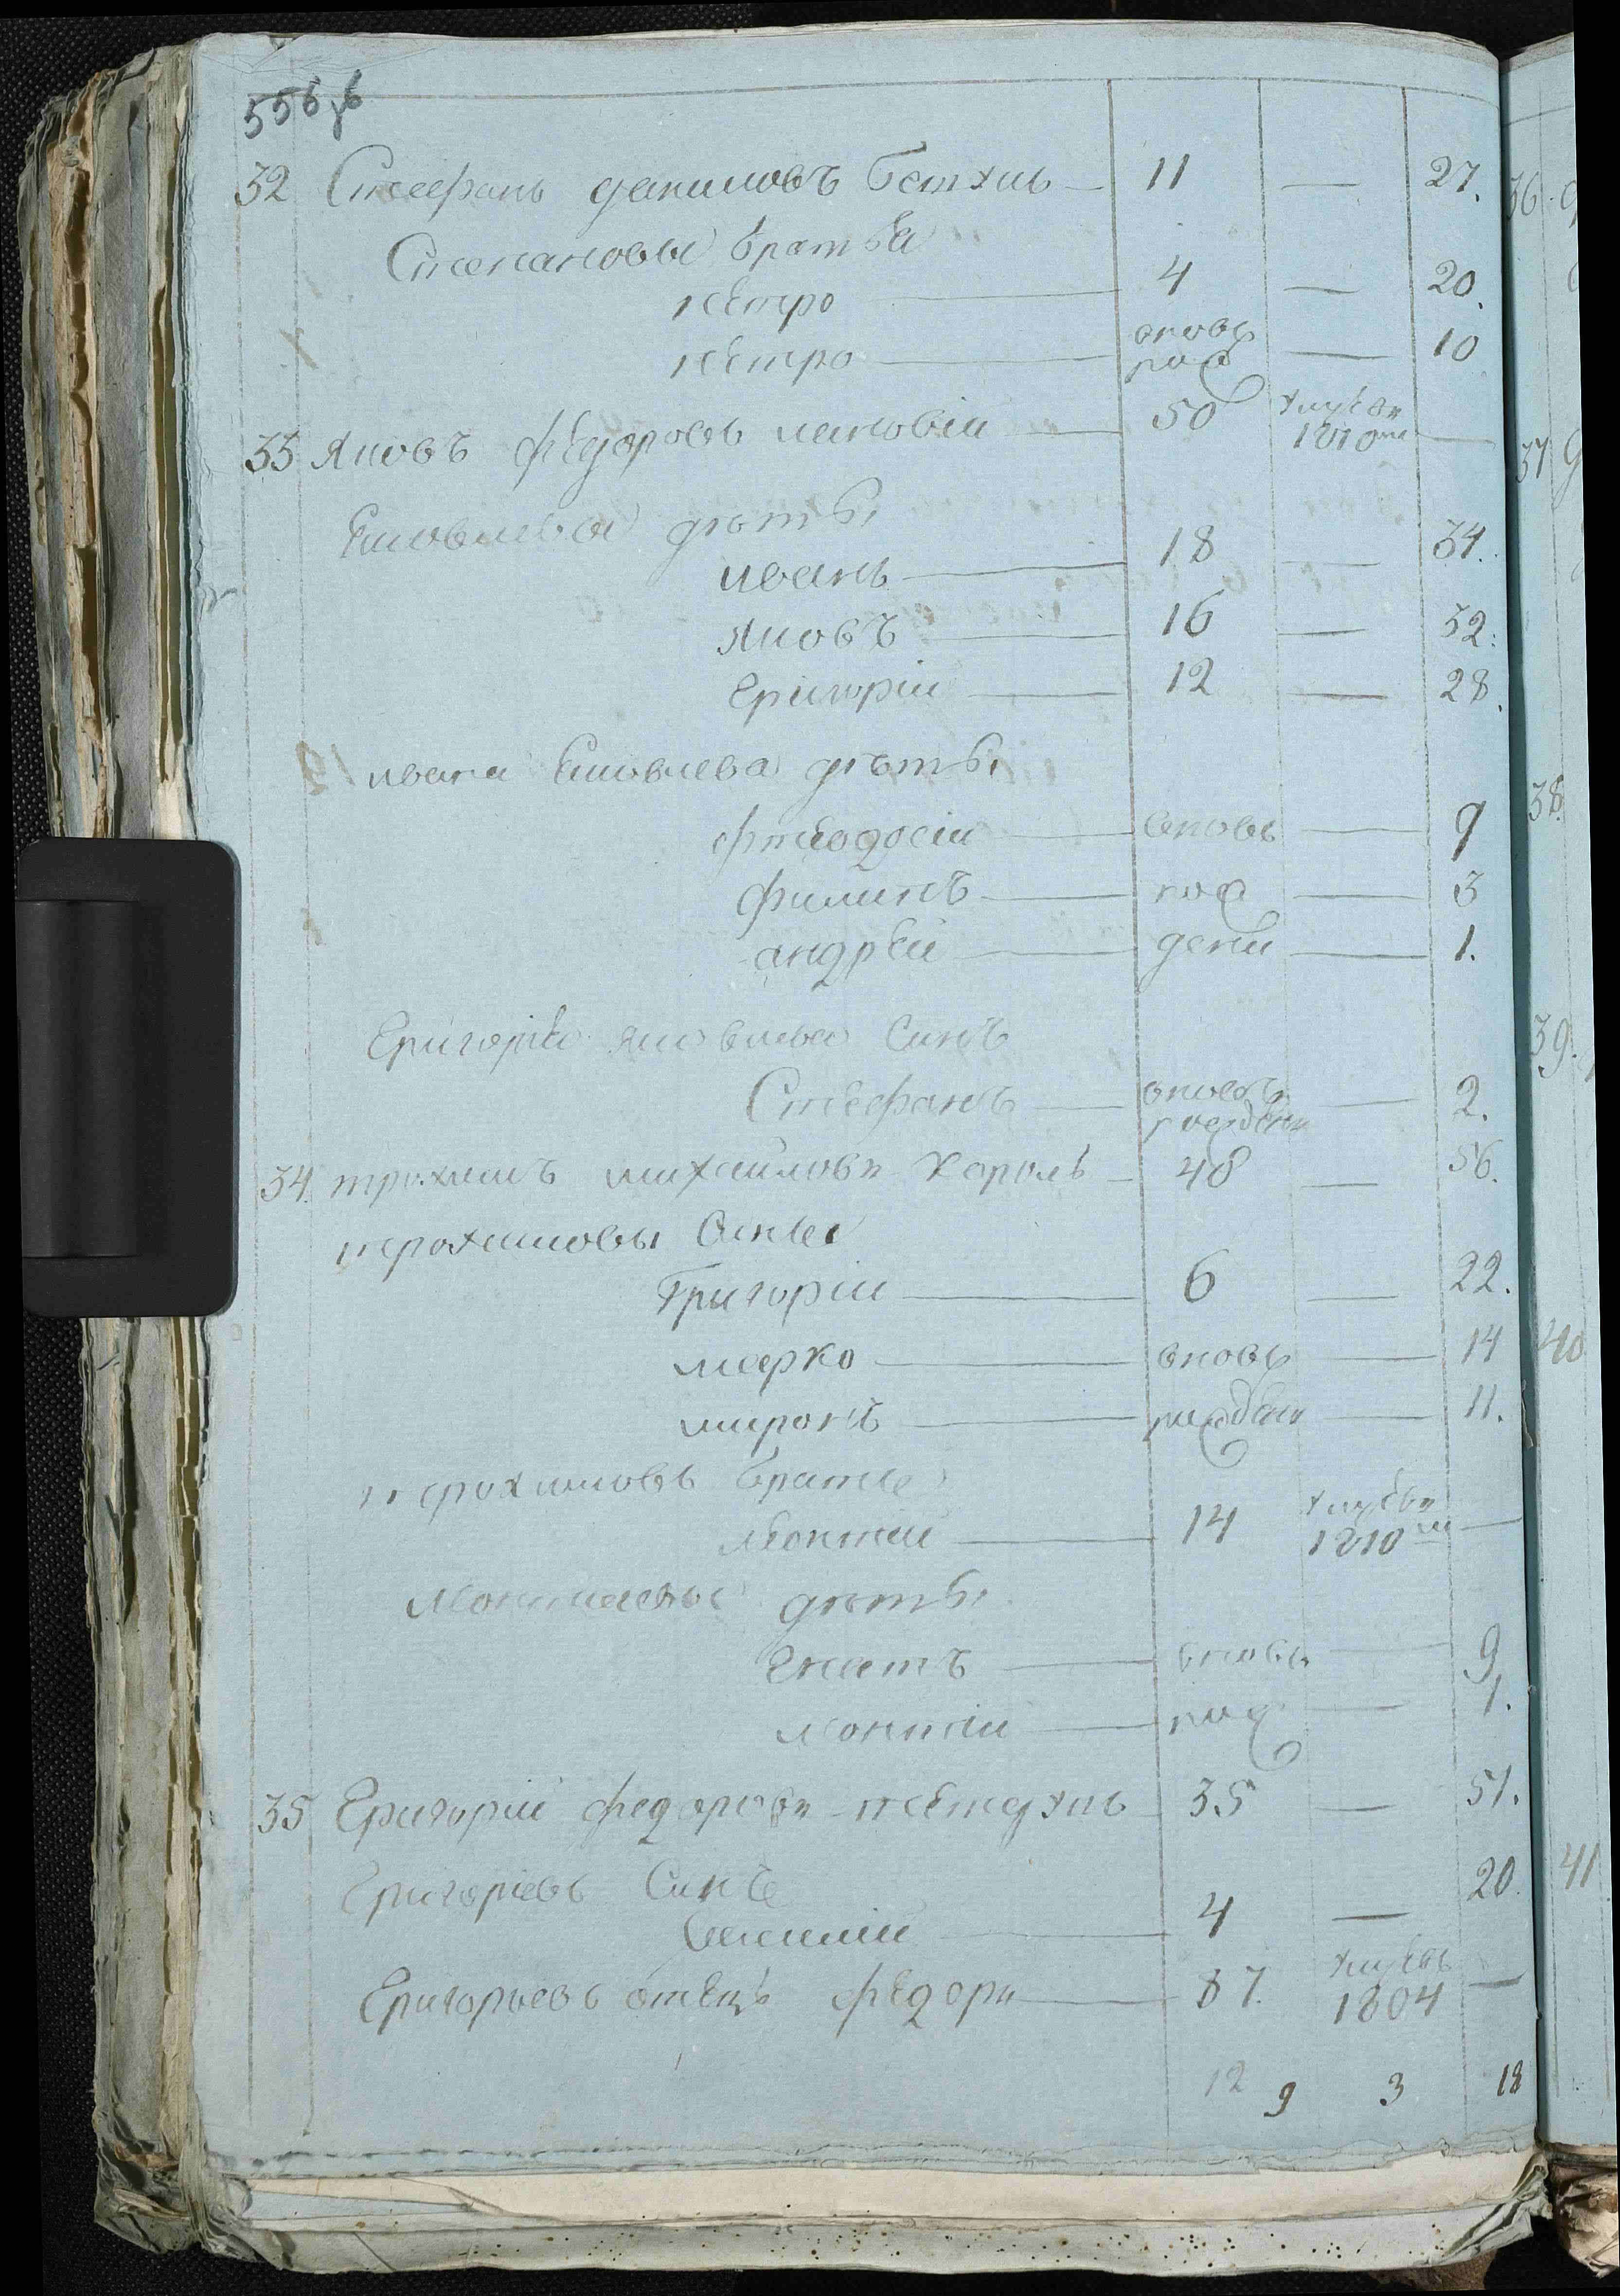 556 зв
32 Стефанъ даниловъ 11 — 27.
Степановы братья
петро 4 — 20.
петро вновь рож — 10
33 Яковъ федоровъ 50 умръвъ 1810м —
Яковлева дѣты
иванъ 18 — 34.
Яковъ 16 — 32.
Григорій 12 — 28.
ивана Яковлева дѣты
фтеодосій вновь — 9
филипъ рож — 3
андрей дени — 1.
Григорія Яковлева синъ
Стефанъ вновь рожденъ — 2.
34. трохимъ михайловъ Король — 48 — 56.
трохимовы сины
Григорій 6 — 22.
марко вновь — 14
миронъ рожден — 11.
трохимовъ братъ
Леонтий 14 умръвъ 1810м —
дѣты
Гнатъ вновь — 9.
рож — 1.
35 Григорій федоровъ петухъ 35 — 51.
Григоріевъ синъ
Василій 4 — 20.
Григорьевъ отецъ федоръ 87. умръвъ 1804 —
12 9 3 18
36
37
38.
39.
40
41